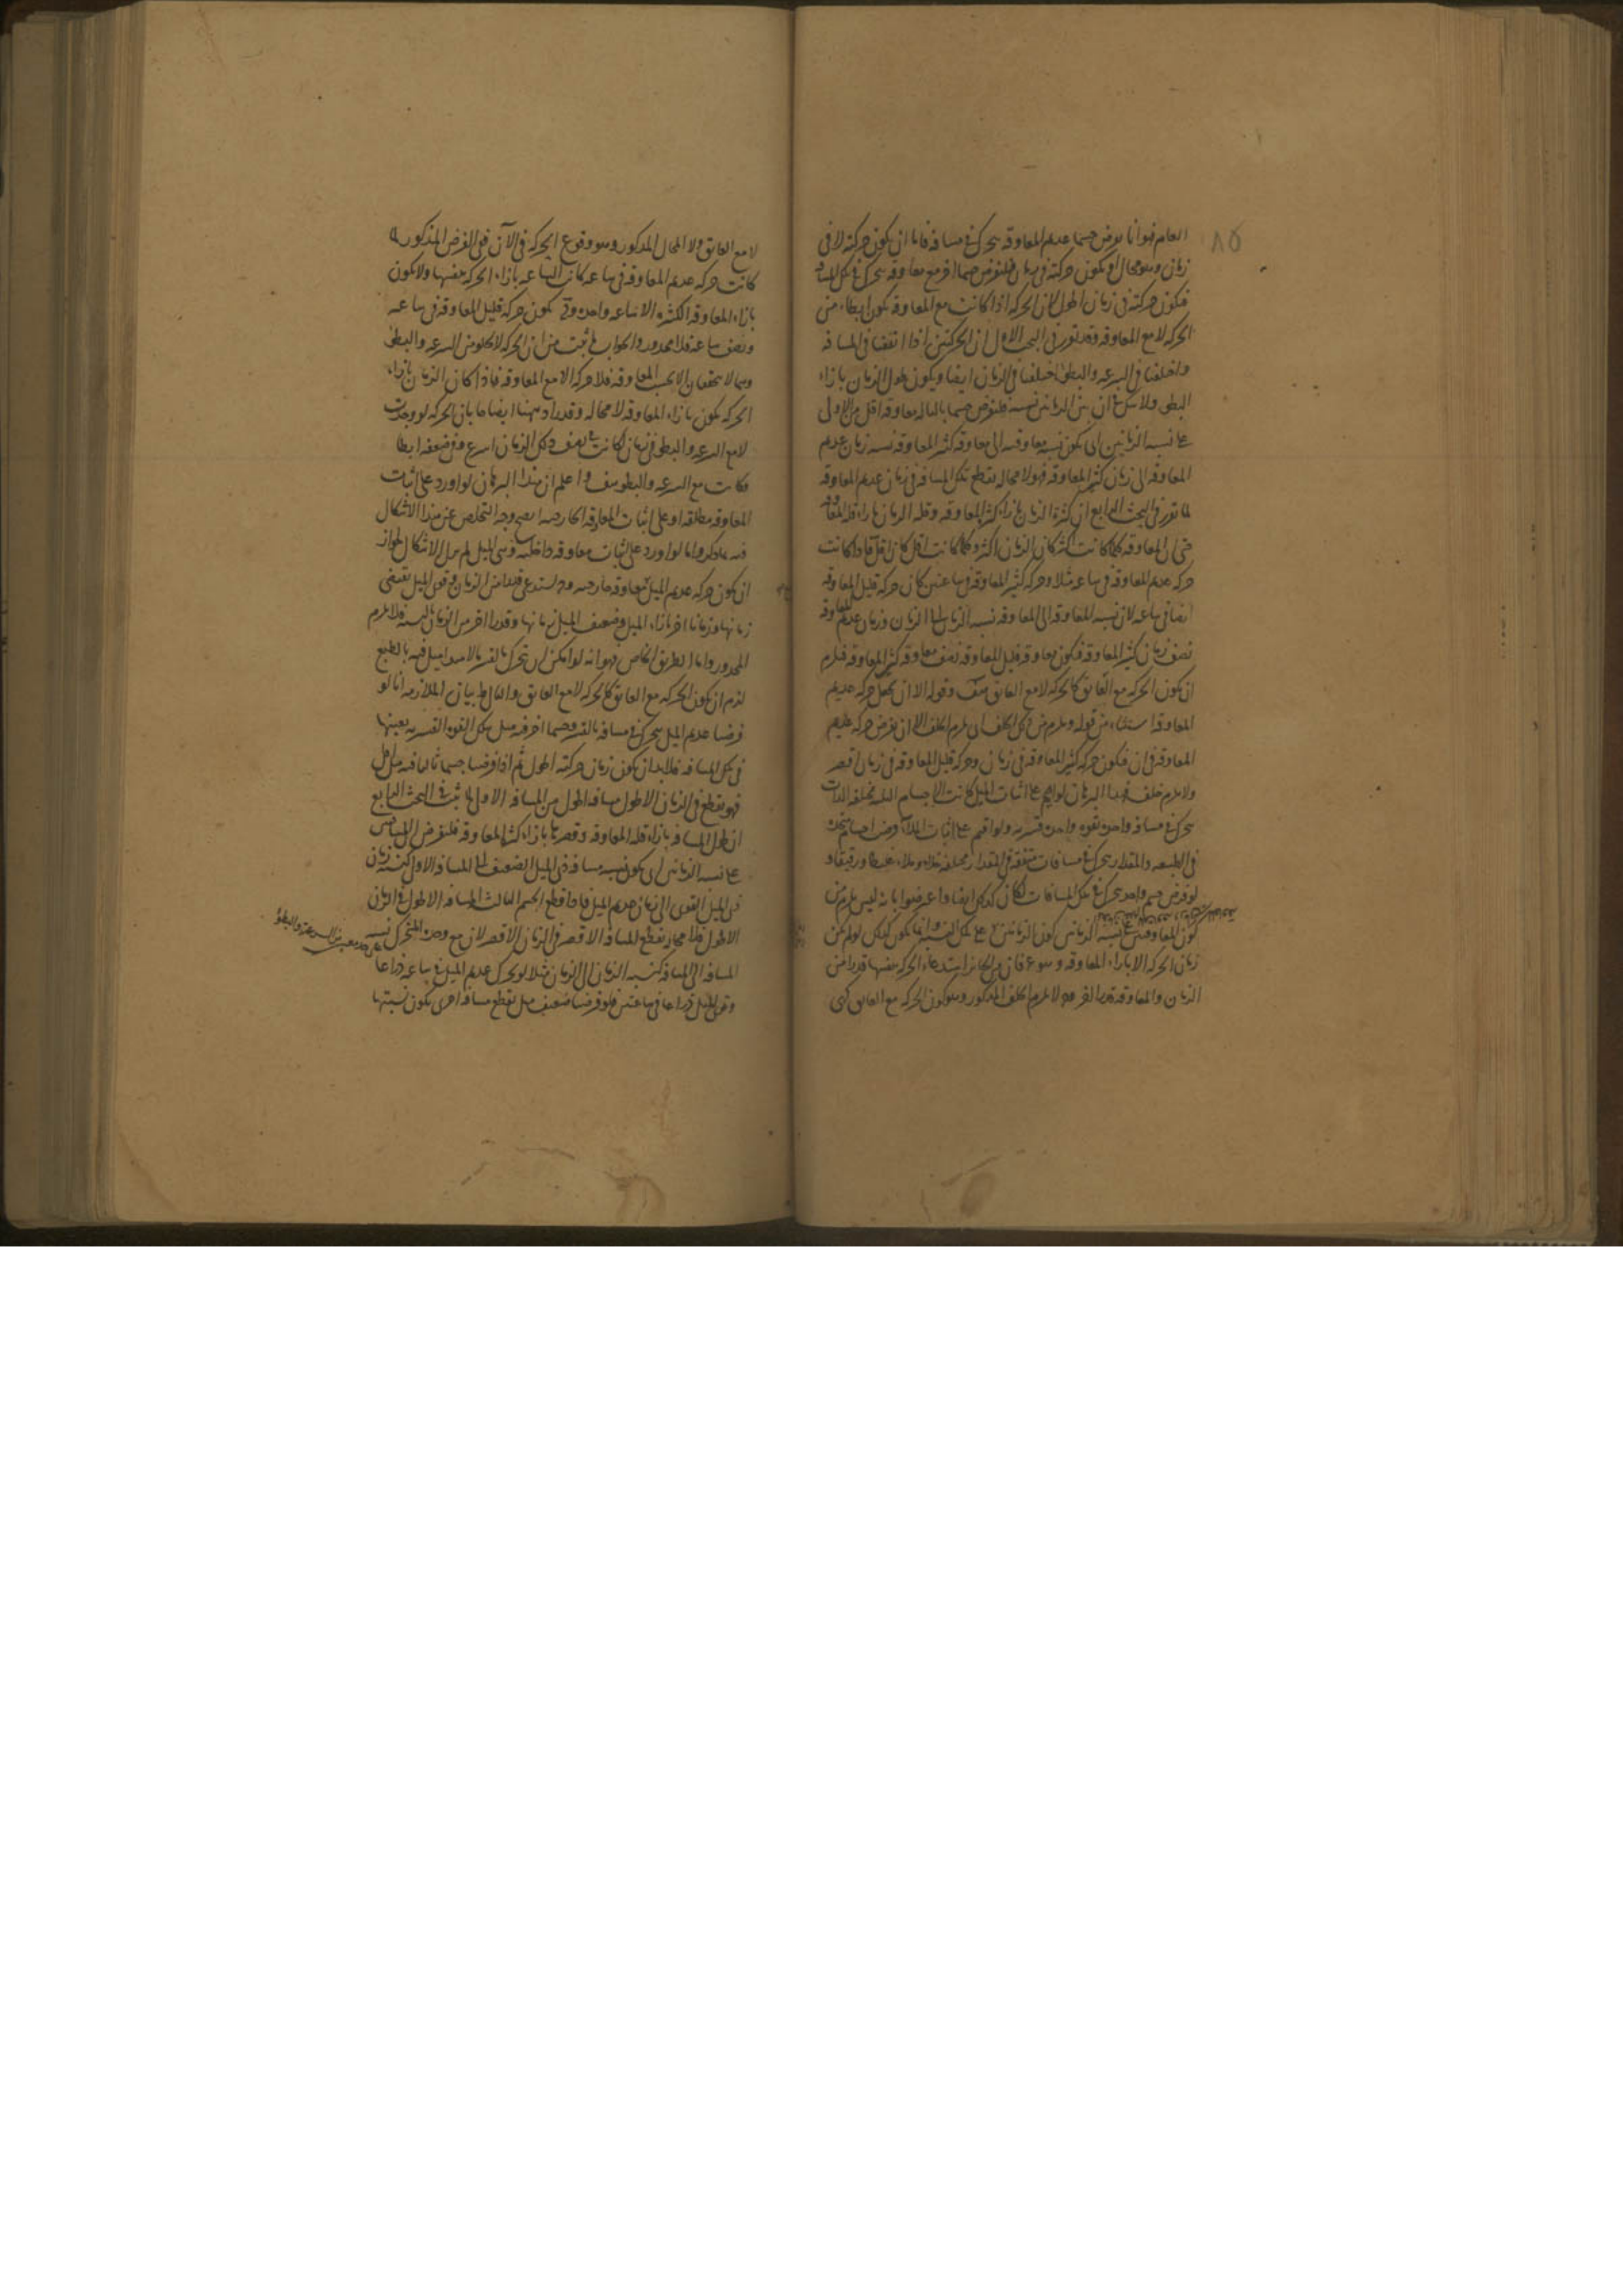 ٨٥
العام فهو انا نفرض جسما عديم المعاوقه يتحرك في مسافه فاما ان يكون حركته لا في
زمان وهو محال او يكون حركته في زمان فلنفرض جسما اخر مع معاوقه يتحرك في تلك المسافه
فتكون حركته في زمان اطول لان الحركه اذا كانت مع المعاوقه تكون ابطاء من
الحركه لا مع المعاوقه وقد تقرر في البحث الاول ان الحركتين اذا اتفقتا في المسافه
واختلفتا في السرعه والبطؤ اختلفتا في الزمان ايضا ويكون طول الزمان بازاء
البطؤ ولا شك في ان بين الزمانين نسبه فلنفرض جسما ثالثا له معاوقه اقل من الاولى
على نسبه الزمانين اى يكون نسبه معاوقته الى معاوقه كثير المعاوقه نسبه زمان عديم
المعاوقه الى زمان كثير المعاوقه فهو لا محاله يقطع تلك المسافه في زمان عديم المعاوقه
لما تقرر في البحث الرابع ان كثره الزمان بازاء كثره المعاوقه وقله الزمان بازاء قله المعاوقه
حتى ان المعاوقه كلما كانت اكثر كان الزمان اكثر وكلما كانت اقل كان اقل فاذا كانت
حركه عديم المعاوقه في ساعه مثلا وحركه كثير المعاوقه في ساعتين كان حركه قليل المعاوقه
ايضا في ساعه لان نسبه المعاوقه الى المعاوقه نسبه الزمان الى الزمان وزمان عديم المعاوقه
نصف زمان كثير المعاوقه فتكون معاوقه قليل المعاوقه نصف معاوقه كثير المعاوقه فيلزم
ان يكون الحركه مع العائق كالحركه لا مع العائق هف وقوله الا ان يجعل حركه عديم
المعاوقه استثناء من قوله ويلزم من ذلك الخلف اى يلزم الخلف الا ان يفرض حركه عديم
المعاوقه في ان فيكون حركه كثير المعاوقه في زمان وحركه قليل المعاوقه في زمان اقصر
ولا يلزم خلف فهذا البرهان لو اقيم على اثبات الميل كانت الاجسام الثلثه مختلفه الذات
يتحرك في مسافه واحده بقوه واحده قسريه ولو اقيم على اثبات الملاء فرضت اجسام متحده
في الطبيعه والمقدار يتحرك في مسافات متفقه في المقدار مختلفه خلاء وملاء غليظا ورقيقا و
لو فرض جسم واحد يتحرك في تلك المسافات لكان كذلك ايضا واعترضوا بانه ليس يلزم من
كون المعاوقتين على نسبه الزمانين كون الزمانين على تلك النسبه وانما يكون كذلك لو لم يكن
زمان الحركه الا بازاء المعاوقه وهو ممنوع فان من الجائز استدعاء الحركه بنفسها قدرا من
الزمان والمعاوقه قدرا اخر وح لا يلزم الخلف المذكور وهو كون الحركه مع العائق كهي
لا مع العائق ولا المحال المذكور وهو وقوع الحركه في الآن ففي الفرض المذكور لما
كانت حركه عديم المعاوقه في ساعه كانت الساعه بازاء الحركه بنفسها ولا يكون
بازاء المعاوقه الكثيره الا ساعه واحده وح يكون حركه قليل المعاوقه في ساعه
ونصف ساعه فلا محدور والجواب لما ثبت من ان الحركه لا يخلو من السرعه والبطؤ
وهما لا يتحققان الا بحسب المعاوقه فلا حركه الا مع المعاوقه فاذا كان الزمان بازاء
الحركه يكون بازاء المعاوقه لا محاله وقد زاد ههنا ايضاحا بان الحركه لو وجدت
لا مع السرعه والبطؤ في زمان لكانت في نصف ذلك الزمان اسرع وفي ضعفه ابطا
فكانت مع السرعه والبطؤ هف واعلم ان هذا البرهان لو اورد على اثبات
المعاوقه مطلقه او على اثبات المعاوقه الخارجيه اتضح وجه التخلص عن هذا الاشكال
فيه بما ذكر واما لو اورد على اثبات معاوقه داخليه وهى الميل لم يزل الاشكال لجواز
ان يكون حركه عديم الميل بمعاوقه خارجيه وح يستدعى قدرا من الزمان وقوى الميل يقتضى
زمانها وزمانا اخر بازاء الميل وضعيف الميل زمانها وقدرا اخر من الزمان بالنسبه فلا يلزم
المحدور واما الطريق الخاص فهو انه لو امكن ان يتحرك بالقسر ما لا مبدا ميل فيه بالطبع
لزم ان يكون الحركه مع العائق كالحركه لا مع العائق والتالى بط بيان الملازمه انا لو
فرضنا عديم الميل يتحرك في مسافه بالقسر وجسما اخر فيه ميل بتلك القوه القسريه بعينها
في تلك المسافه فلا بد ان يكون زمان حركته اطول ثم اذا فرضنا جسما ثالثا فيه ميل اقل
فهو يقطع في الزمان الاطول مسافه اطول من المسافه الاولى لما ثبت في البحث الرابع
ان طول المسافه بازاء قله المعاوقه وقصرها بازاء كثره المعاوقه فلنفرض المسافتين
على نسبه الزمانين اى يكون نسبه مسافه ذى الميل الضعيف الى المسافه الاولى كنسبه زمان
ذى الميل القوى الى زمان عديم الميل فاذا قطع الجسم الثالث المسافه الاطول في الزمان
الاطول فلا محاله يقطع المسافه الاقصر في الزمان الاقصر لان مع وحده المتحرك نسبه
المسافه الى المسافه كنسبه الزمان الى الزمان مثلا لو تحرك عديم الميل في ساعه ذراعا
وقوى الميل ذراعا في ساعتين فلو فرضنا ضعيف ميل يقطع مسافه اخرى يكون نسبتها
السرعه والبطؤ